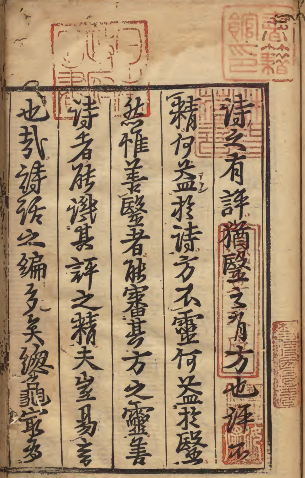 詩之有評猶醫之有方也評不
精何益於詩方不靈何益於醫
然惟善醫者能審其方之靈善
詩者能識其評之精夫豈易言
也哉詩話之編多矣總龜最爲